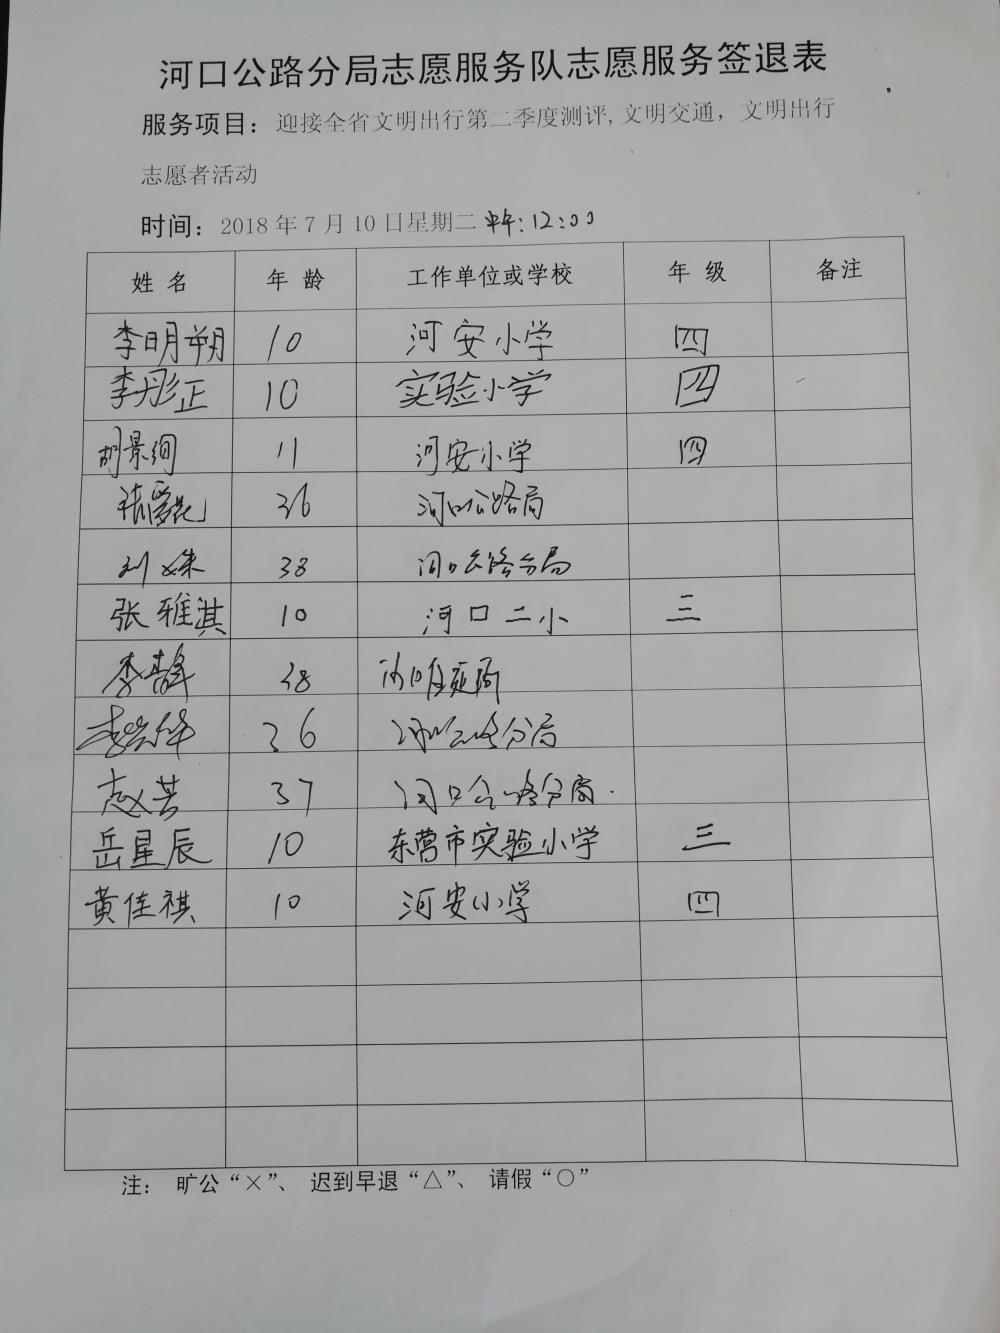 河口公路分局志愿服务队志愿服务签退表
服务项目：迎接全省文明出行第二季度测评,文明交通，文明出行
志愿者活动
时间：2018年7月10日星期二 中午:12:00
姓名 年龄 工作单位或学校 年级 备注
李明朔 10 河安小学 四
李彤正 10 实验小学 四
胡景绚 11 河安小学 四
36 河口公路局
刘姝 38 河口公路分局
张雅淇 10 河口二小 三
李静 38
36 河口公路分局
37 河口公路分局.
岳星辰 10 东营市实验小学 三
黄佳祺 10 河安小学 四
注： 旷公“×”、 迟到早退“△”、 请假“○”